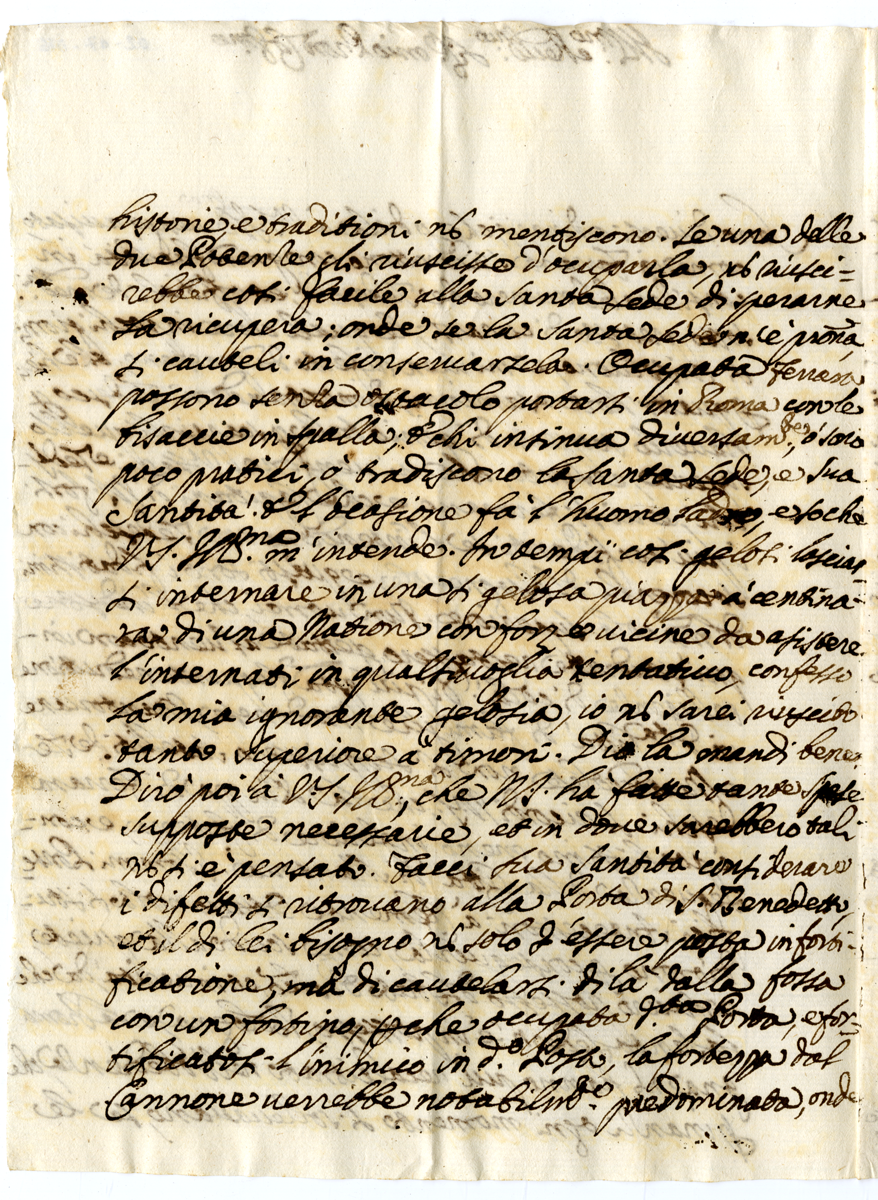 historie, e traditioni nõ mentiscono. Se una delle
due Potenze gli riuscisse d'ocuparla, nõ riusci=
rebbe così facile alla Santa Sede di sperarne
la ricupera; onde se la Santa Sede n'è
si cauteli in conservarsela. Ocupata Ferrara
possono senza ostacolo portarsi in Roma con le
bisaccie in spalla; et chi intinua diversam.te, ò sono
poco pratici, ò tradiscono la Santa Sede, e sua
Santità. L'ocasione fà l'huomo ladro, e so che
V.S. Ill.ma m'intende. In tempi così gelosi lasciar=
si internare in una sì gelosa piazza à centina=
ra di una Natione con forze vicine da asistere
l'internati in qualsivoglia tentativo, confesso
la mia ignorante gelosia, io nõ sarei riuscito
tanto superiore à timori. Dio la mandi bene
Dirò poi à V.S. Ill.ma, che N.S. hà fatte tante spese
supposte necessarie, et in dove sarebbero tali
nõ si è pensato. Facci sua Santità considerare
i difetti si ritrovano alla Porta di S. Benedetto,
et il di lei bisogno nõ solo d'essere posta in forti=
ficatione, mà di cautelarsi di là dalla fossa
con un fortino, p che ocupata d.ta Porta, e for=
tificatosi l'inimico in d.o Posto, la fortezza dal
Cannone verrebbe notabilm.te predominata, onde